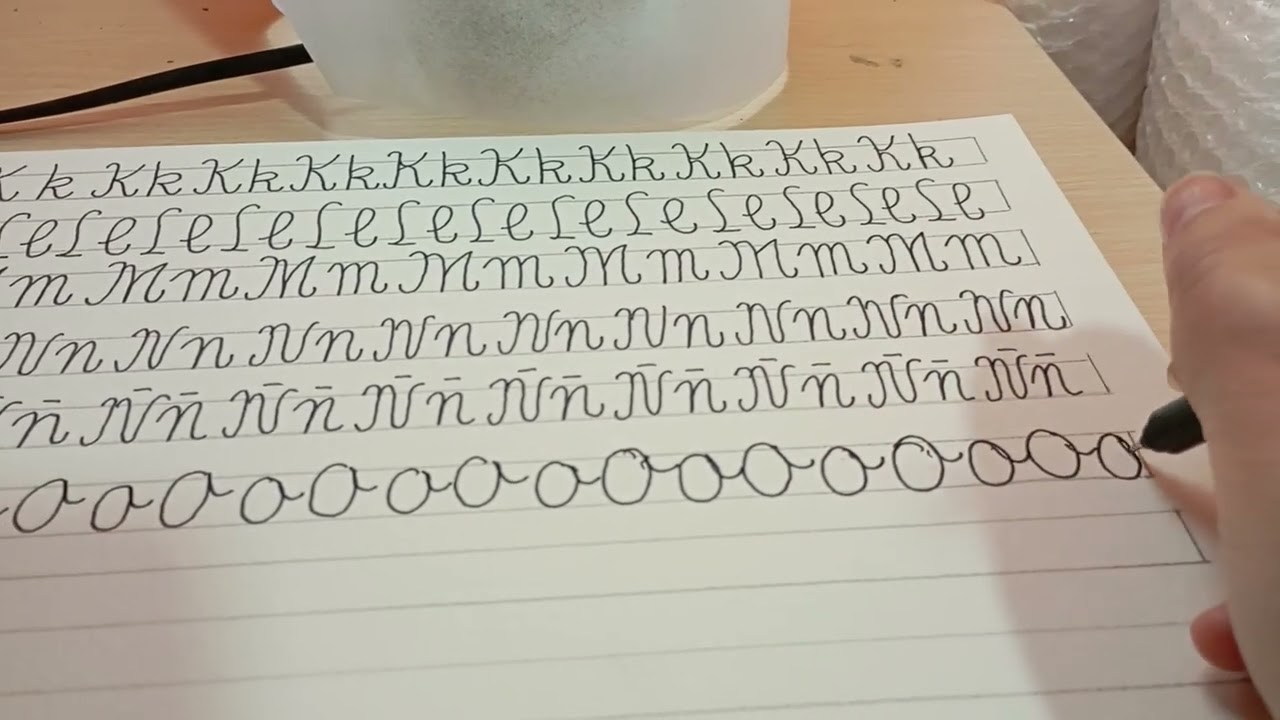 K k K k K k K k K k K k K k K k K k K k
L l L l L l L l L l L l L l L l L l L l L l L l L l
m M m M m M m M m M m M m
N n N n N n N n N n N n N n N n N n
ñ Ñ ñ Ñ ñ Ñ ñ Ñ ñ Ñ ñ Ñ ñ Ñ ñ Ñ ñ
O o O o O o O o O o O o O o O o